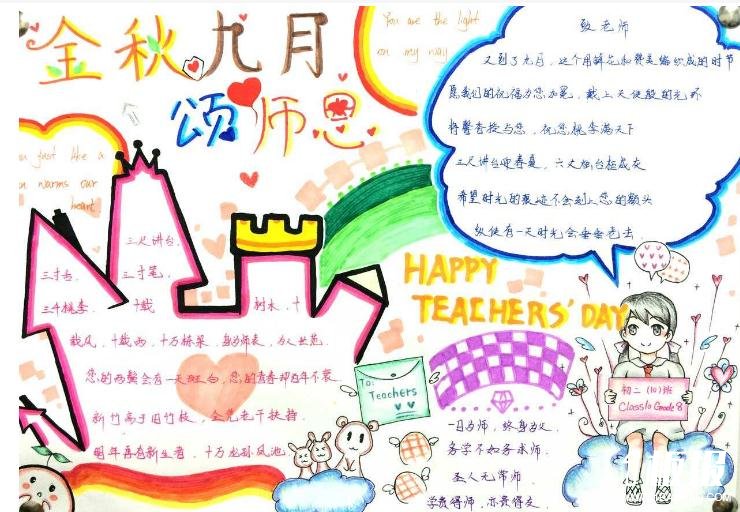 金秋九月
颂师恩
You are the light
on my way
致老师
又到了九月，这个用鲜花和赞美编织成的时节
愿我们的祝福为您加冕，戴上天使般的光环
将馨香授与您，祝您桃李满天下
三尺讲台迎春夏，六丈烟台桩成灰
希望时光的痕迹不会刻上您的额头
纵使有一天时光会垂垂老去
you just like a
sun warms our
heart
三尺讲台，
三寸舌，三寸笔，
三千桃李，十载树木，十
载风，十载雨，十万栋梁，身为师表，为人世范.
您的两鬓会有一天斑白，您的青春却百年不衰.
新竹高于旧竹枝，全凭老干扶持.
明年再有新生者，十万龙孙凤池.
HAPPY
TEACHERS' DAY
To:
Teachers
一日为师，终身为父.
务学不如务求师.
圣人无常师.
学贵得师，亦贵得友
初二（10）班
Class10 Grade8